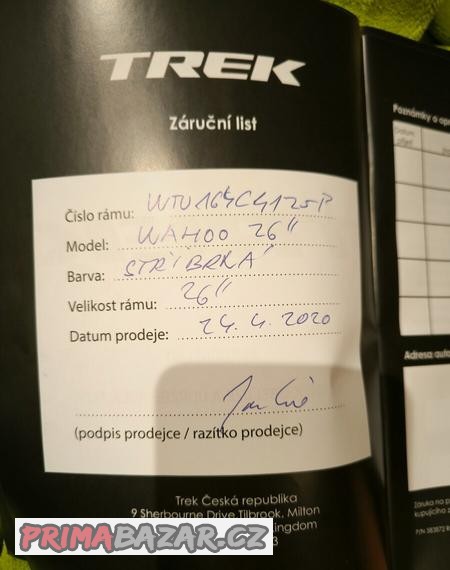 TREK
Záruční list
Číslo rámu: WTU164C4125P
Model: WAHOO 26"
Barva: STŘÍBRNÁ
Velikost rámu: 26"
Datum prodeje: 24. 4. 2020
(podpis prodejce / razítko prodejce)
Trek Česká republika
9 Sherbourne Drive Tilbrook, Milton
Kingdom
3
Poznámky o
Adresa
Záruka na
kupujícího
P/N 383872
PRIMABAZAR.CZ